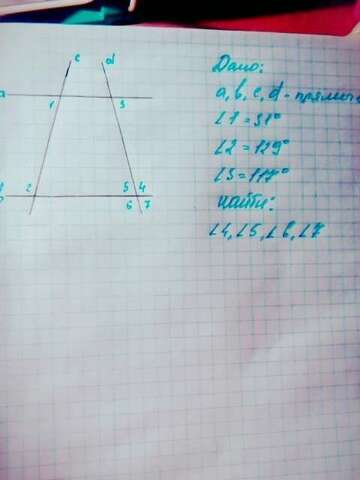 c d
a
1 3
2 5 4
b 6 7
Дано:
a, b, c, d - прямые
∠1 = 51°
∠2 = 129°
∠3 = 117°
Найти:
∠4, ∠5, ∠6, ∠7